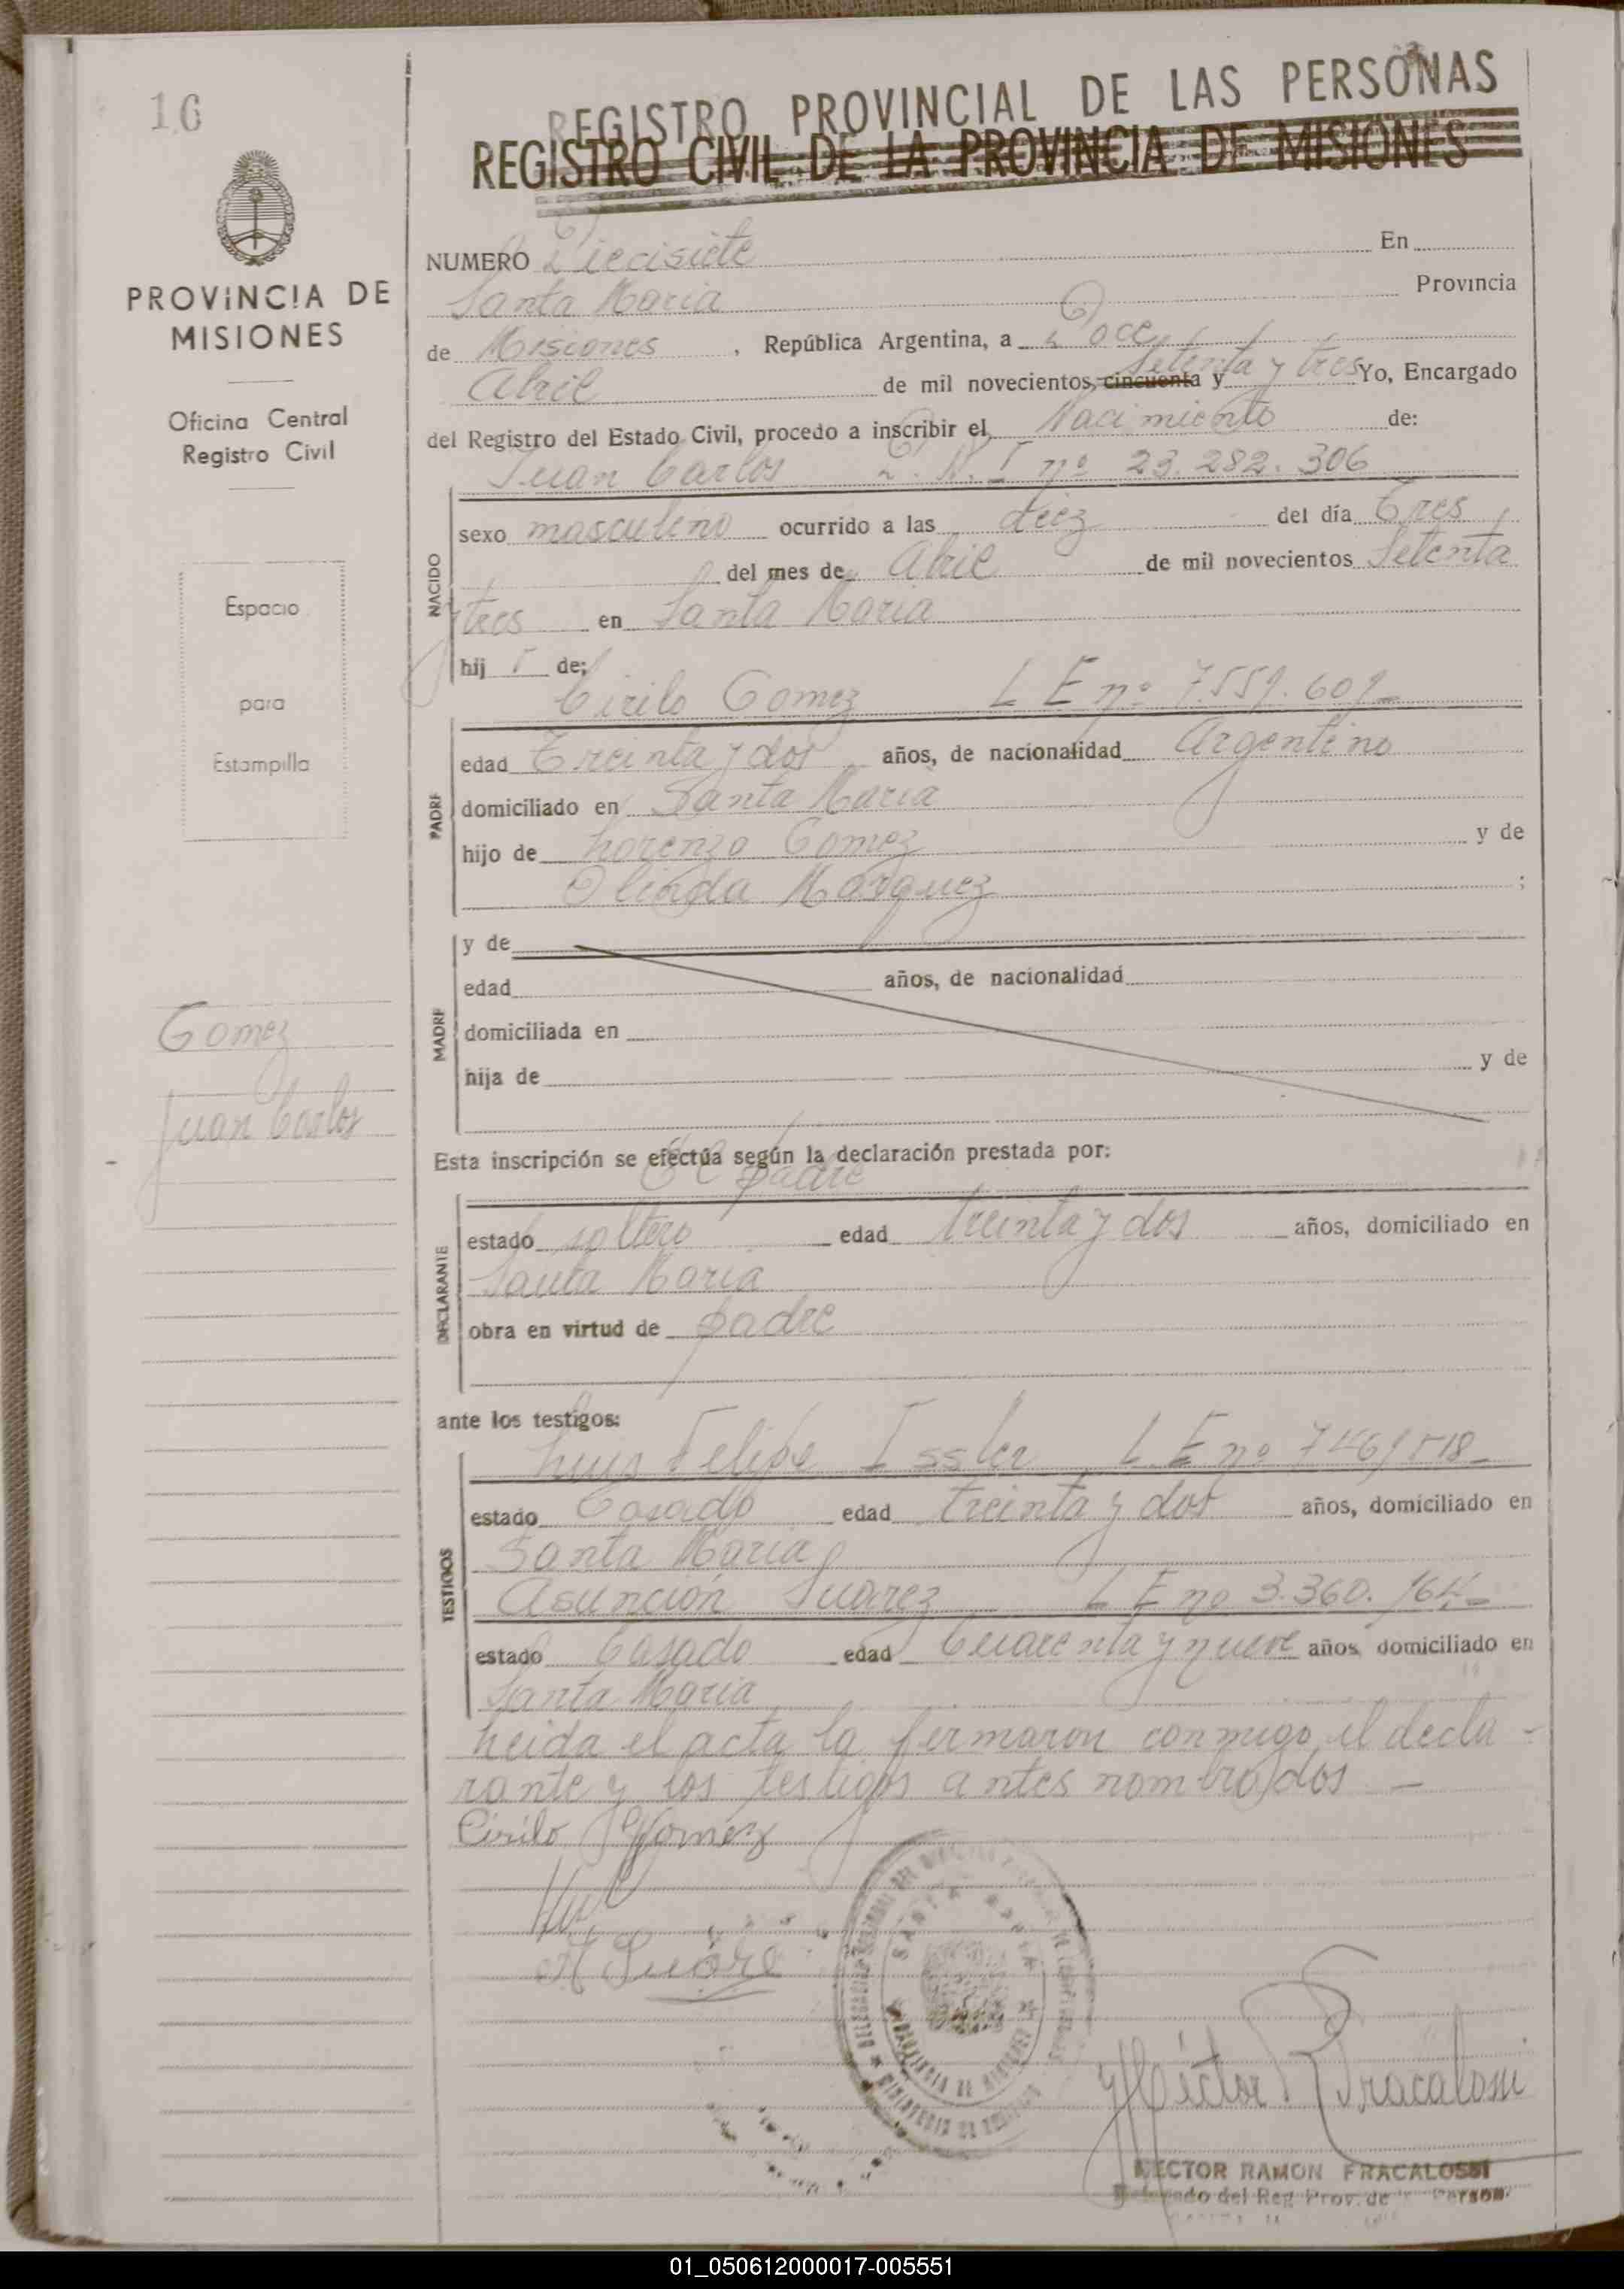 16
REGISTRO PROVINCIAL DE LAS PERSONAS
REGISTRO CIVIL DE LA PROVINCIA DE MISIONES
PROVINCIA DE
MISIONES
Oficina Central
Registro Civil
Espacio
para
Estampilla
Gomez
Juan Carlos
NUMERO Diecisiete En
Santa Maria Provincia
de Misiones, República Argentina, a Doce
Abril de mil novecientos, cincuenta y Setenta y tres Yo, Encargado
del Registro del Estado Civil, procedo a inscribir el Nacimiento de:
Juan Carlos D.N.I nº 23.282.306
NACIDO
sexo masculino ocurrido a las diez del día Tres
del mes de Abril de mil novecientos Setenta
y tres en Santa Maria
hij de:
Cirilo Gomez L E nº 7.559.609
PADRE
edad Treinta y dos años, de nacionalidad Argentino
domiciliado en Santa Maria
hijo de Lorenzo Gomez y de
Olinda Marquez ;
MADRE
y de
edad años, de nacionalidad
domiciliada en
hija de y de
Esta inscripción se efectúa según la declaración prestada por:
El padre
DECLARANTE
estado soltero edad treinta y dos años, domiciliado en
Santa Maria
obra en virtud de padre
ante los testigos:
Luis Felipe Issler L E nº
TESTIGOS
estado Casado edad treinta y dos años, domiciliado en
Santa Maria
Asunción Suarez L E nº 3.360.164
estado Casado edad Cuarenta y nueve años, domiciliado en
Santa Maria
Leida el acta la firmaron conmigo el decla-
rante y los testigos antes nombrados
Cirilo Gomez
Hector R Fracalossi
HECTOR RAMON FRACALOSSI
Delegado del Reg. Prov. de Person
01_050612000017-005551